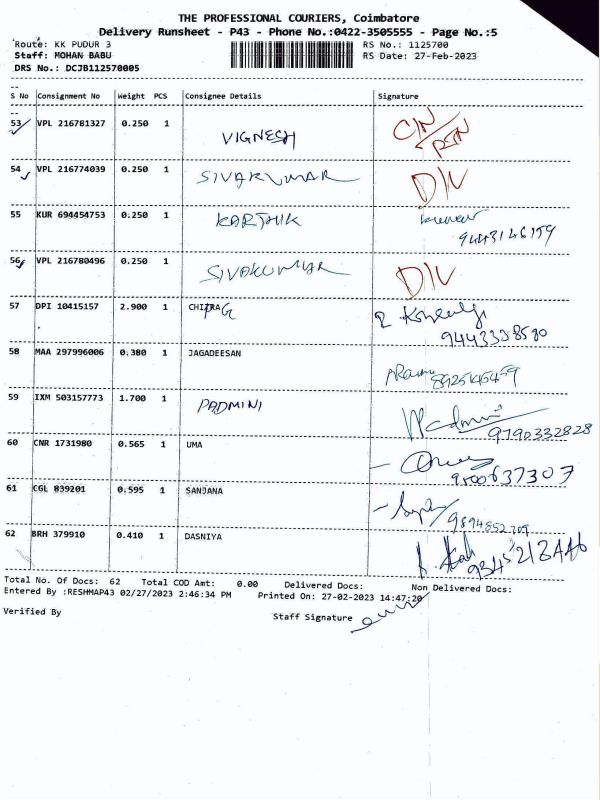 THE PROFESSIONAL COURIERS, Coimbatore
Delivery Runsheet - P43 - Phone No.:0422-3505555 - Page No.:5
Route: KK PUDUR 3 RS No.: 1125700
Staff: MOHAN BABU RS Date: 27-Feb-2023
DRS No.: DCJB112570005
S No Consignment No Weight PCS Consignee Details Signature
53 VPL 216781327 0.250 1 VIGNESH C/N RTN
54 VPL 216774039 0.250 1 SIVAKUMAR D/L
55 KUR 694454753 0.250 1 KARTHIK 9443146159
56 VPL 216780496 0.250 1 SIVAKUMAR D/L
57 DPI 10415157 2.900 1 CHIRAG 9443338580
58 MAA 297996006 0.380 1 JAGADEESAN 8925145459
59 IXM 503157773 1.700 1 PADMINI Padmini 9790332828
60 CNR 1731980 0.565 1 UMA 9500637307
61 CGL 839201 0.595 1 SANJANA 9894852709
62 BRH 379910 0.410 1 DASNIYA
Total No. Of Docs: 62 Total COD Amt: 0.00 Delivered Docs: Non Delivered Docs:
Entered By :RESHMAP43 02/27/2023 2:46:34 PM Printed On: 27-02-2023 14:47:20
Verified By Staff Signature